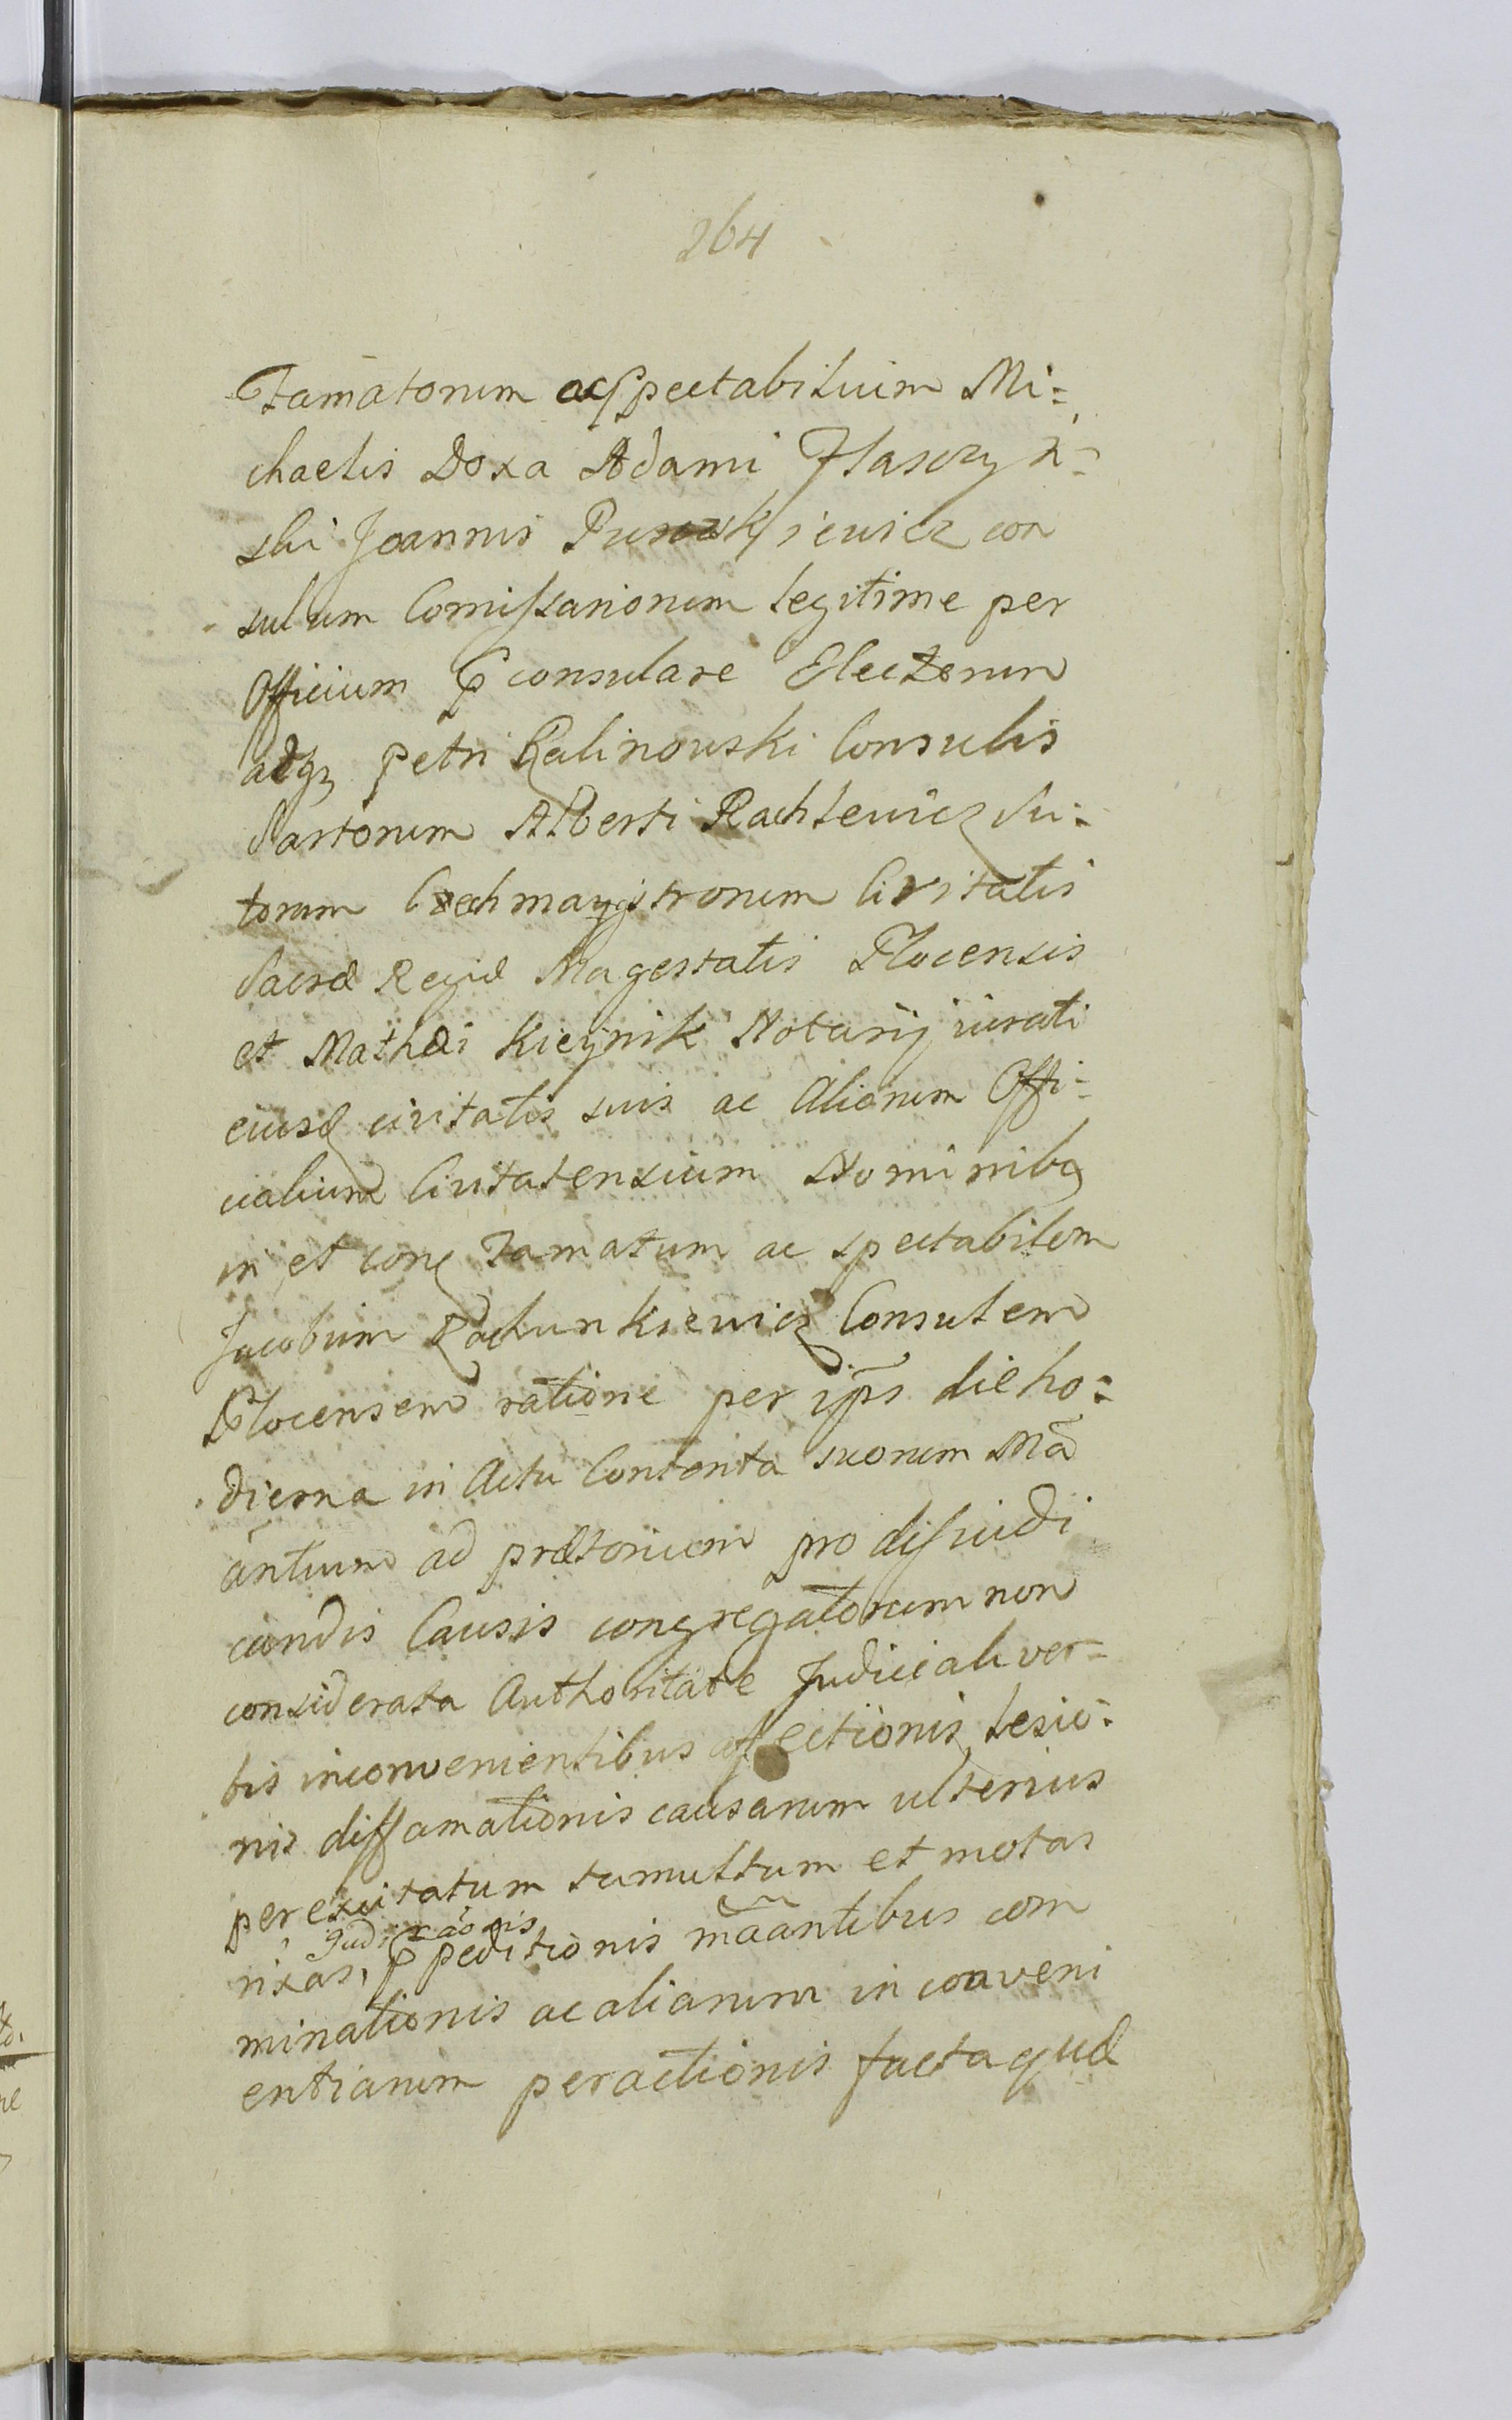 264
Famatorum ac Spectabilium Mi=
chaelis Doxa Adami Flasczyn=
ski Joannis con
sulum Comissariorum legitime per
Officium Proconsulare Electorum
adq3 Petri Kalinowski Consulis
Sartorum Alberti Rachlewicz Su=
torum Czechmagistrorum Civitatis
Sacræ Regiæ Magestatis Plocensis
et Mathæi Kieynik Notarij iurati
eiusd civitatis suis ac Aliorum Offi=
cialium Civitatensium Nominibq
in et con Famatum ac spectabilem
Jacobum Rachunkiewicz Consulem
Plocensem ratione per ips̃ die ho=
dierna in Actu Contenta suorum Mã
antium ad prætorium pro disiudi
candis Causis congregatorum non
considerata Authoritate Judiciali ver=
bis inconvenientibus affectionis, lesio=
nis diffamationis causarum ulterius
per excitatum tumultum et motas
Judi cãonis
rixas, Ppeditionis mãantibus com
minationis ac aliarum in conveni
entiarum peractionis facta quæ